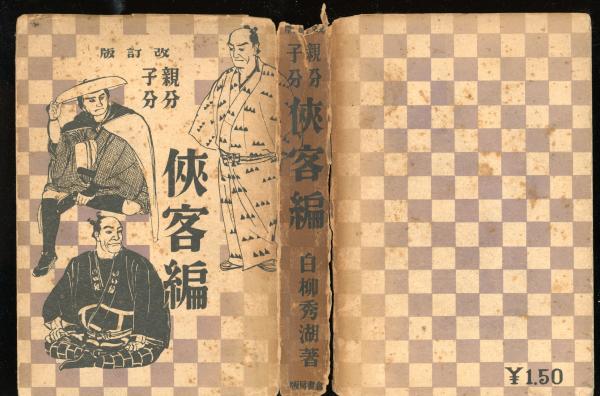 版訂改
親分
子分
俠客編
親分
子分
俠客編
白柳秀湖著
¥1.50